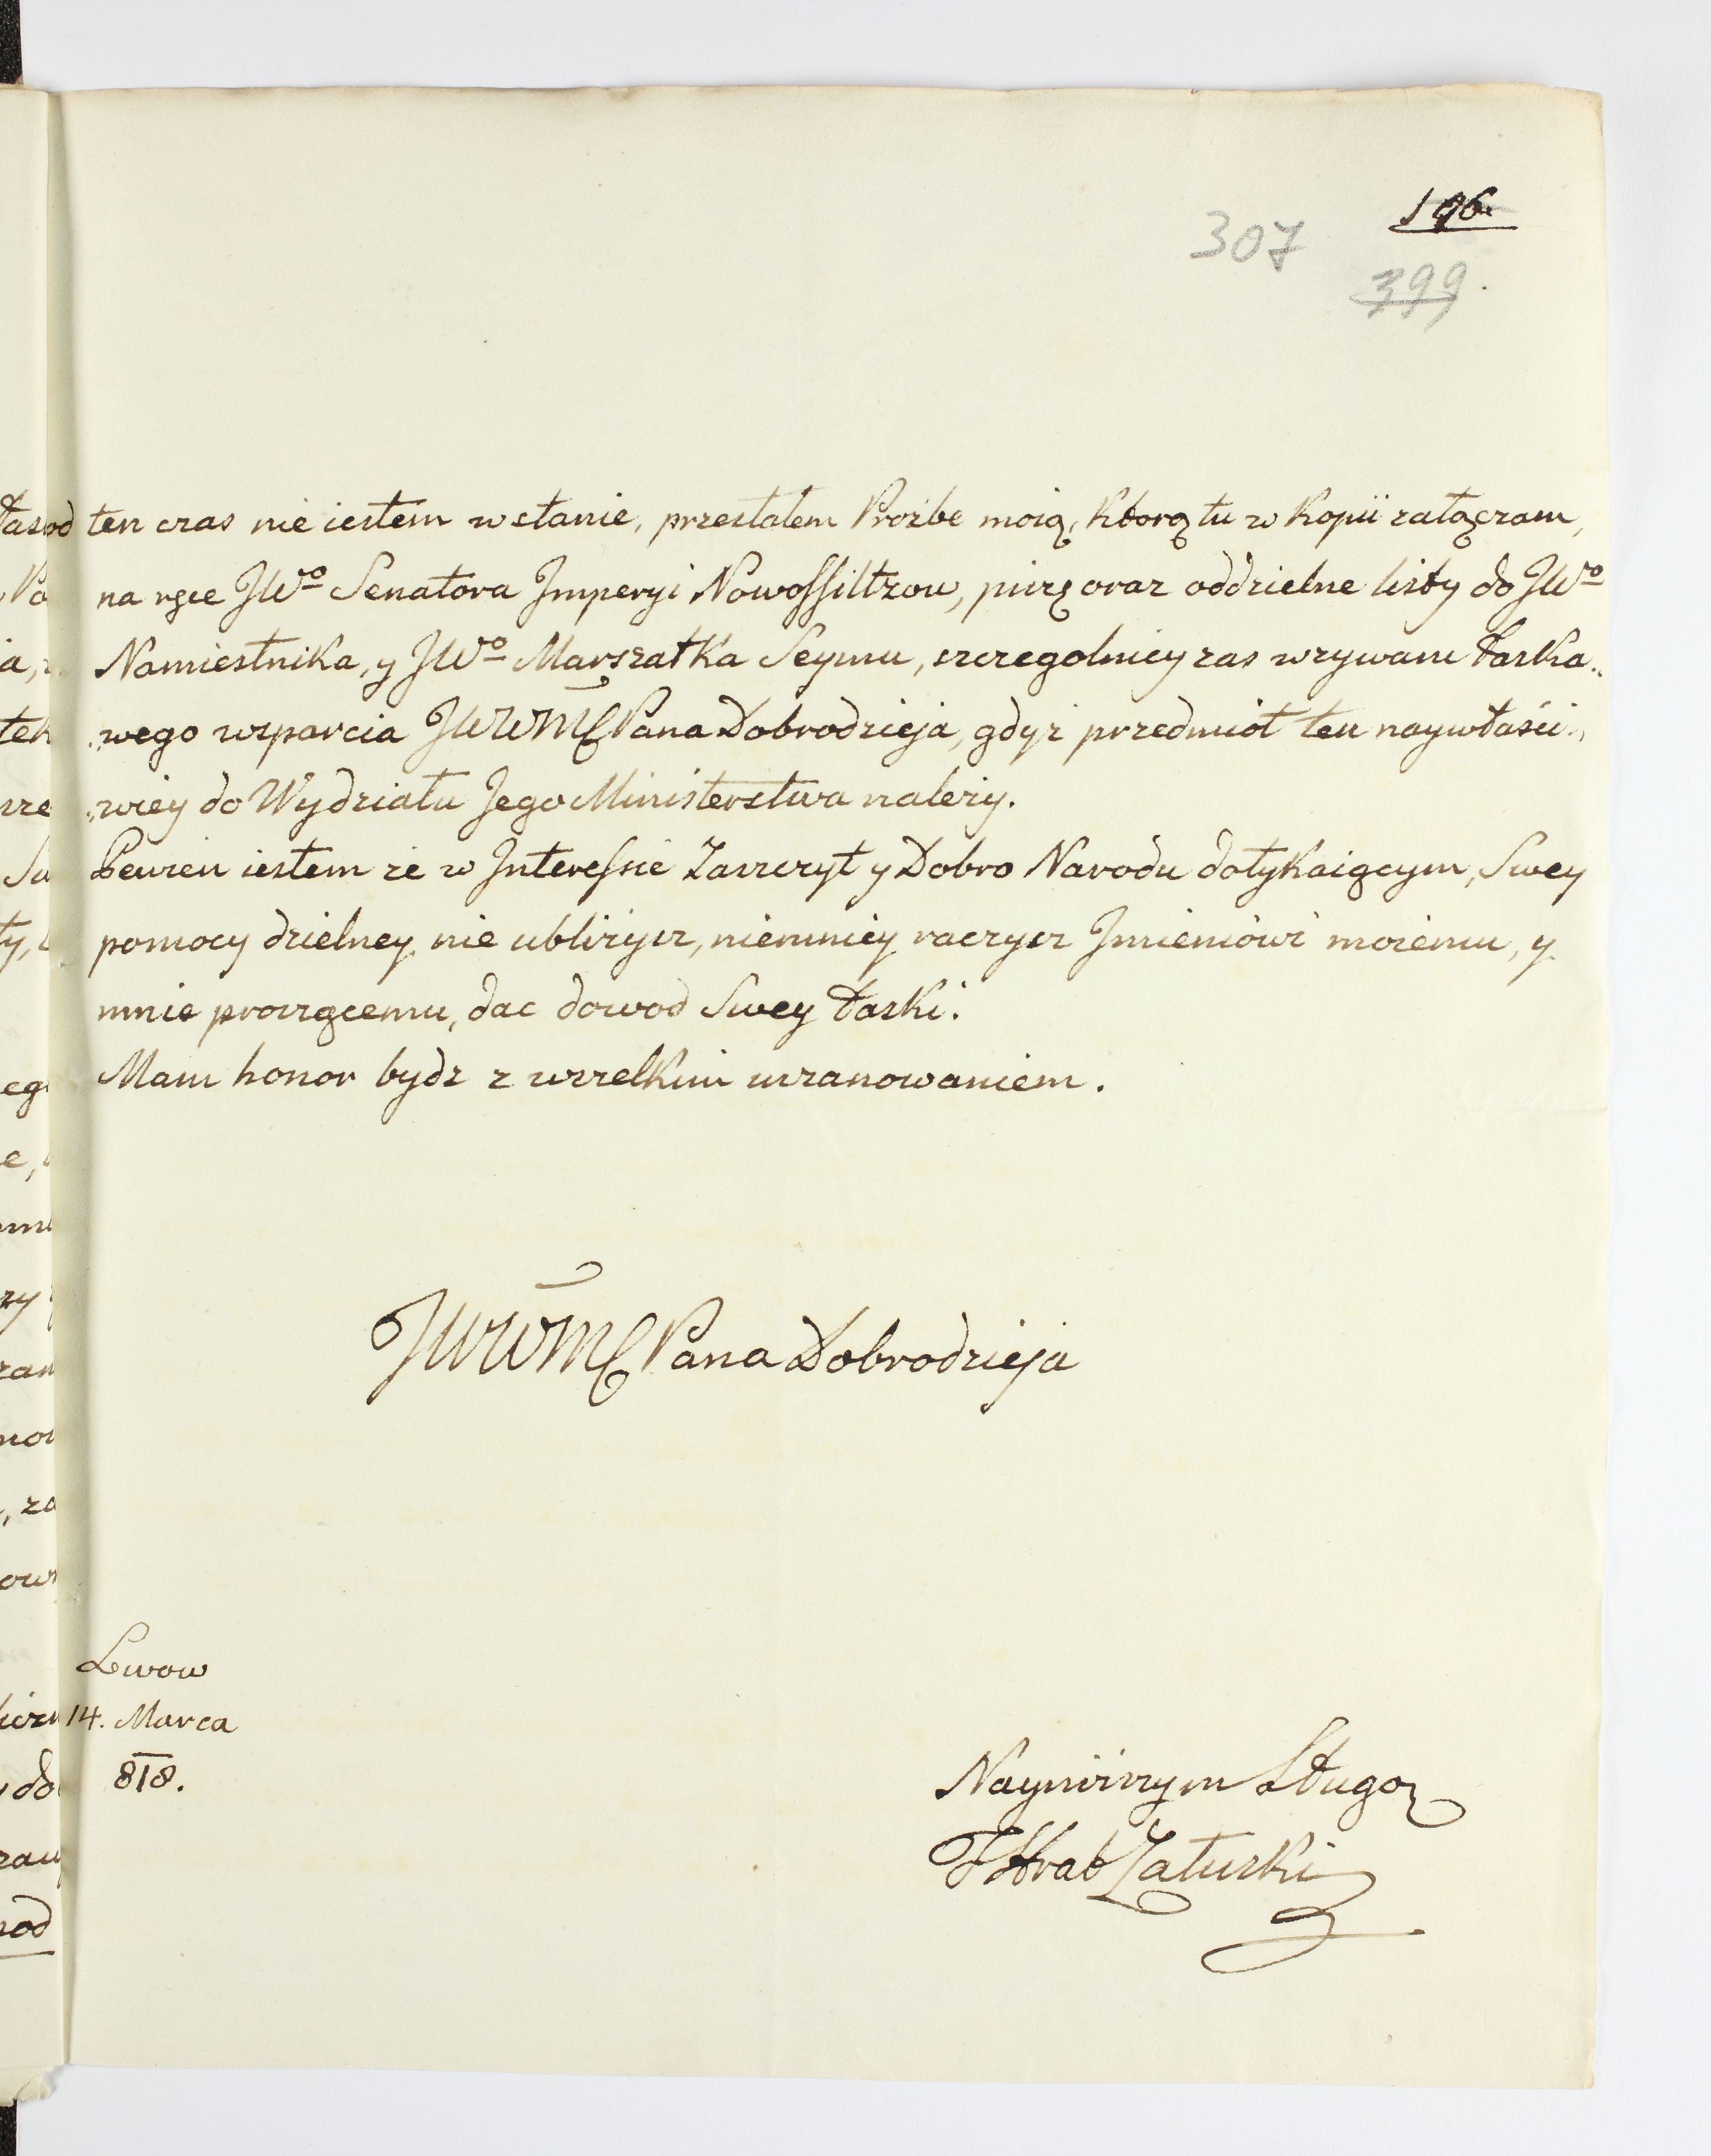 196.
307
399.
ten czas nie iestem w stanie, przesłałem Prożbe moią, Ktorą tu w Kopii załączam,
na ręce JWo Senatora Imperyi Nowossiltzow, piszę oraz oddzielne listy do JWo
Namiestnika, y JWo Marszałka Seymu, szczegolniey zas wzywam łaska„
„wego wsparcia JWWMC Pana Dobrodzieja, gdyż przedmiot ten naywłaści„
„wiey do Wydziału Jego Ministerstwa należy.
Pewien iestem że w Interessie Zaszczyt y Dobro Narodu dotykaiącym, Swey
pomocy dzielney nie ubliżysz, niemniey raczysz Imieniowi moiemu, y
mnie proszącemu, dac dowod Swey łaski.
Mam honor bydz z wszelkim uszanowaniem.
JWWMC Pana Dobrodzieja
Lwow
14. Marca
818.
Nayniższym Sługą
J Hrab Załuski